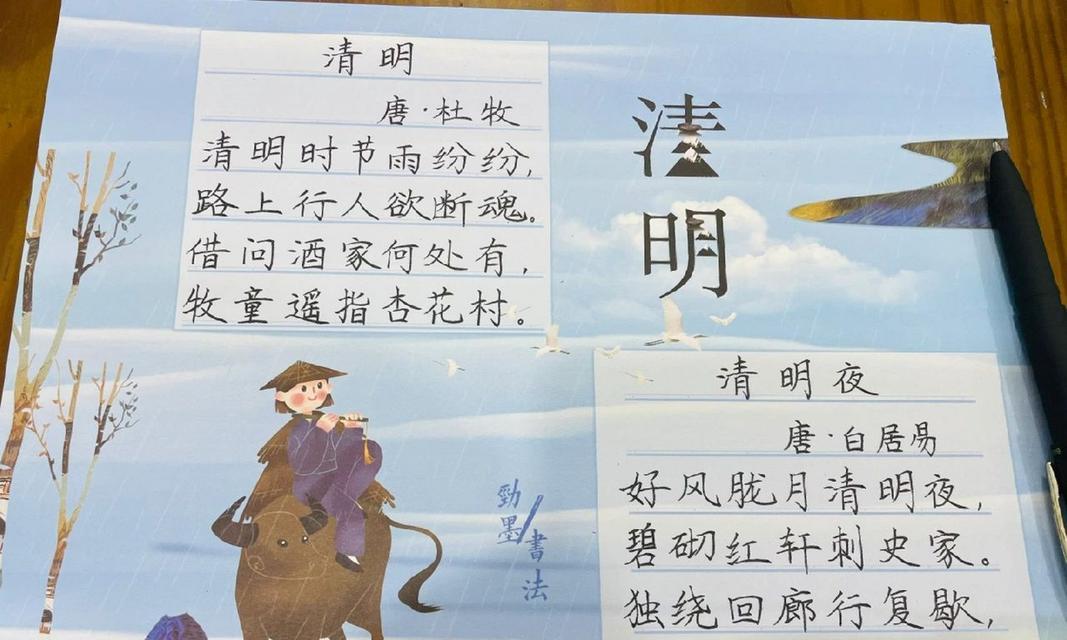 清明
唐·杜牧
清明时节雨纷纷，
路上行人欲断魂。
借问酒家何处有，
牧童遥指杏花村。
清
明
清明夜
唐·白居易
好风胧月清明夜，
碧砌红轩刺史家。
独绕回廊行复歇，
勁墨
書法